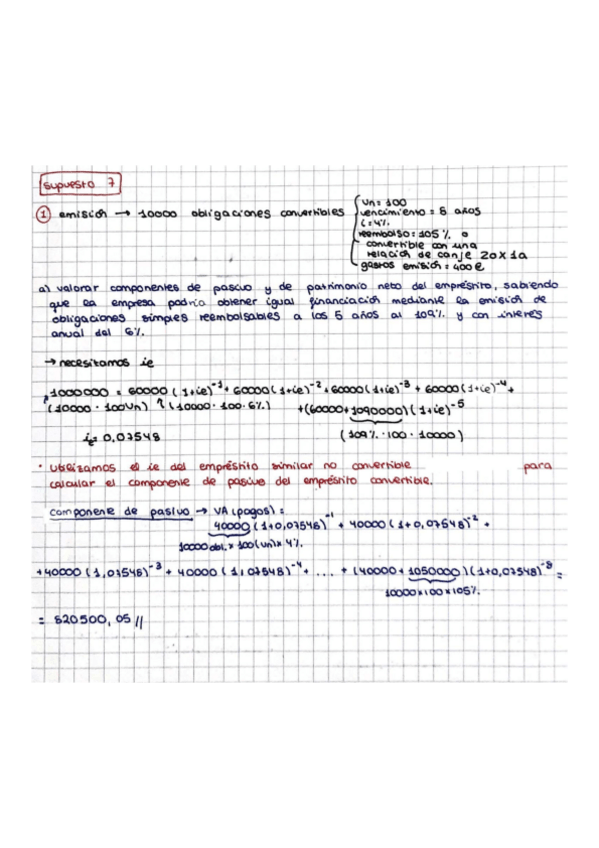 Supuesto 7
① emisión → 10000 obligaciones convertibles
Vn = 100
vencimiento = 8 años
i = 4%
reembolso = 105% o
convertible con una
relación de canje 20 x 1a
gastos emisión = 400€
a) valorar componentes de pasivo y de patrimonio neto del empréstito, sabiendo
que la empresa podría obtener igual financiación mediante la emisión de
obligaciones simples reembolsables a los 5 años al 109% y con interés
anual del 6%.
→ necesitamos ie
1000000 = 60000 (1+ie)^-1 + 60000 (1+ie)^-2 + 60000 (1+ie)^-3 + 60000 (1+ie)^-4 +
(10000 · 100Vn) (10000 · 100 · 6%) + (60000 + 1090000) (1+ie)^-5
ie = 0,07548 (109% · 100 · 10000)
• Utilizamos el ie del empréstito similar no convertible para
calcular el componente de pasivo del empréstito convertible.
componene de pasivo → VA (pagos) =
40000 (1+0,07548)^-1 + 40000 (1+0,07548)^-2 +
10000 obl. x 100 (Vn) x 4%.
+ 40000 (1,07548)^-3 + 40000 (1,07548)^-4 + .... + (40000 + 1050000) (1+0,07548)^-8 =
10000 x 100 x 105%.
= 820500,05 //